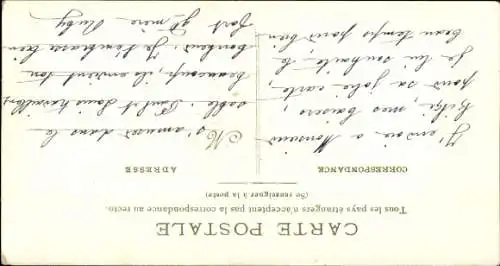 CARTE POSTALE
Tous les pays étrangers n'acceptent pas la correspondance au recto.
(Se renseigner à la poste)
CORRESPONDANCE
ADRESSE
J'envoie a Monsieur
mes baisers,
pour sa jolie carte,
je lui souhaite le
beau temps pour bien
s'amuser dans le
sable. Paul et Louis
beaucoup, ils envient son
bonheur. Je t'embrasse bien
fort Gd mère Ruby